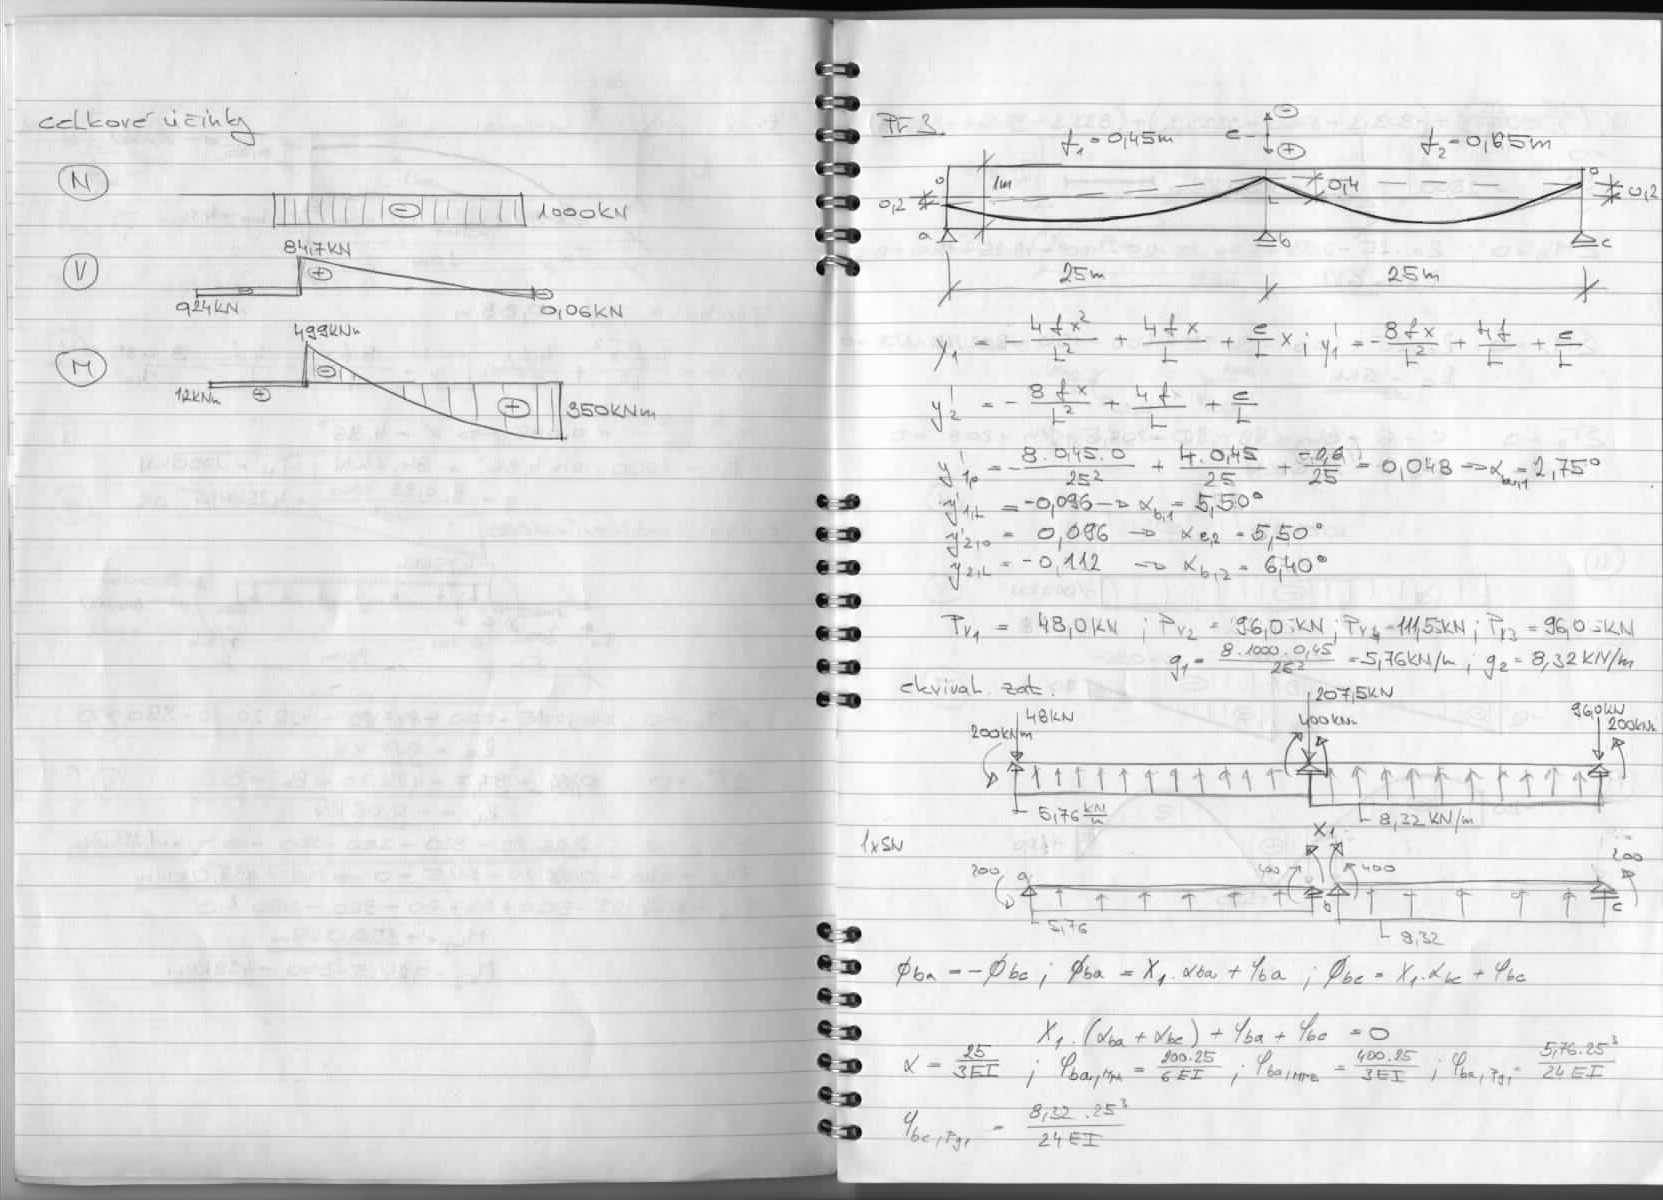 celkové účinky
N
⊖ 1000KN
84,7KN
V ⊕
0,24KN ⊖ 0,06KN
499KNm
M ⊖
12KNm ⊕ ⊕ 350KNm
Př 3.
f₁ = 0,45m e ⊖ ⊕ f₂ = 0,65m
0,2 1m 0,4 0,2
a b c
25m 25m
y₁ = - 4fx²/L² + 4fx/L + e/L x; y₁' = - 8fx/L² + 4f/L + e/L
y₂' = - 8fx/L² + 4f/L + e/L
= - 8.0,45.0/25² + 4.0,45/25 + = 0,048 → = 2,75°
y'₁,L = -0,096 → α b,1 = 5,50°
y'₂,₀ = 0,096 → α c,2 = 5,50°
y₂,L = -0,112 → α b,2 = 6,40°
Pv₁ = 48,0KN ; Pv₂ = 96,0KN ; = 111,5KN ; = 96,0KN
g₁ = 8.1000.0,45/25² = 5,76KN/m ; g₂ = 8,32KN/m
ekvival. zat.
207,5KN
48KN 400KNm 96,0KN
200KNm 200KNm
5,76 KN/m 8,32 KN/m
X₁
1xSN
200 a 400 b 400 200 c
5,76 8,32
ϕba = -ϕbc ; ϕba = X₁.αba + φba ; ϕbc = X₁.αbc + φbc
X₁.(αba + αbc) + φba + φbc = 0
α = 25/3EI ; = 200.25/6EI ; = 400.25/3EI ; = 5,76.25³/24EI
= 8,32.25³/24EI